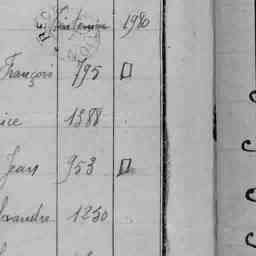 1980
François 795
ice 1388
Jean 953
exandre 1250